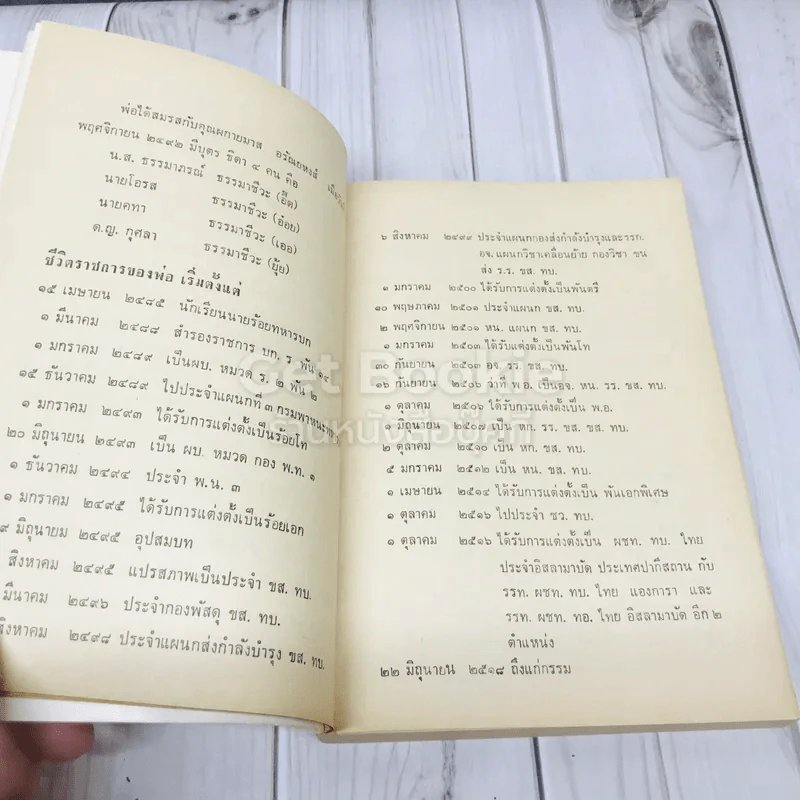 พ่อได้สมรสกับคุณผกายมาส อรัณยหงส์ เมื่อวันที่
พฤศจิกายน ๒๔๙๒ มีบุตร ธิดา ๔ คน คือ
น.ส. ธรรมาภรณ์ ธรรมาชีวะ (อี๊ด)
นายโอรส ธรรมาชีวะ (อ๋อย)
นายคทา ธรรมาชีวะ (เออ)
ด.ญ. กุศลา ธรรมาชีวะ (ยุ้ย)
ชีวิตราชการของพ่อ เริ่มตั้งแต่
๑๕ เมษายน ๒๔๘๕ นักเรียนนายร้อยทหารบก
๑ มีนาคม ๒๔๘๘ สำรองราชการ บก. ร. พัน ๑๔
๑ มกราคม ๒๔๘๙ เป็นผบ. หมวด ร. ๒ พัน ๒
๑๕ ธันวาคม ๒๔๘๙ ไปประจำแผนกที่ ๓ กรมพาหนะทหารบก
๑ มกราคม ๒๔๙๓ ได้รับการแต่งตั้งเป็นร้อยโท
๒๐ มิถุนายน ๒๔๙๓ เป็น ผบ. หมวด กอง พ.ท. ๑
๑ ธันวาคม ๒๔๙๔ ประจำ พ.น. ๓
๑ มกราคม ๒๔๙๕ ได้รับการแต่งตั้งเป็นร้อยเอก
๙ มิถุนายม ๒๔๙๕ อุปสมบท
สิงหาคม ๒๔๙๕ แปรสภาพเป็นประจำ ขส. ทบ.
มีนาคม ๒๔๙๖ ประจำกองพัสดุ ขส. ทบ.
สิงหาคม ๒๔๙๘ ประจำแผนกส่งกำลังบำรุง ขส. ทบ.
๖ สิงหาคม ๒๔๙๙ ประจำแผนกกองส่งกำลังบำรุงและรรก.
อจ. แผนกวิชาเคลื่อนย้าย กองวิชา ขน
ส่ง ร.ร. ขส. ทบ.
๑ มกราคม ๒๕๐๐ ได้รับการแต่งตั้งเป็นพันตรี
๑๐ พฤษภาคม ๒๕๐๑ ประจำแผนก ขส. ทบ.
๒ พฤศจิกายน ๒๕๐๑ หน. แผนก ขส. ทบ.
๑ มกราคม ๒๕๐๓ ได้รับการแต่งตั้งเป็นพันโท
๓๐ กันยายน ๒๕๐๓ อจ. รร. ขส. ทบ.
๑๖ กันยายน ๒๕๐๖ ว่าที่ พ.อ. เป็นอจ. หน. รร. ขส. ทบ.
๑ ตุลาคม ๒๕๐๖ ได้รับการแต่งตั้งเป็น พ.อ.
๑ มิถุนายน ๒๕๐๗ เป็น หก. รร. ขส. ขส. ทบ.
๒ ตุลาคม ๒๕๑๐ เป็น หก. ขส. ทบ.
๕ มกราคม ๒๕๑๒ เป็น หน. ขส. ทบ.
๑ เมษายน ๒๕๑๔ ได้รับการแต่งตั้งเป็น พันเอกพิเศษ
๑ ตุลาคม ๒๕๑๖ ไปประจำ ชว. ทบ.
๑ ตุลาคม ๒๕๑๖ ได้รับการแต่งตั้งเป็น ผชท. ทบ. ไทย
ประจำอิสลามาบัด ประเทศปากีสถาน กับ
รรท. ผชท. ทบ. ไทย แองการา และ
รรท. ผชท. ทอ. ไทย อิสลามาบัด อีก ๒
ตำแหน่ง
๒๒ มิถุนายน ๒๕๑๘ ถึงแก่กรรม
Get Bookie
ร้านหนังสือขี้คาที่